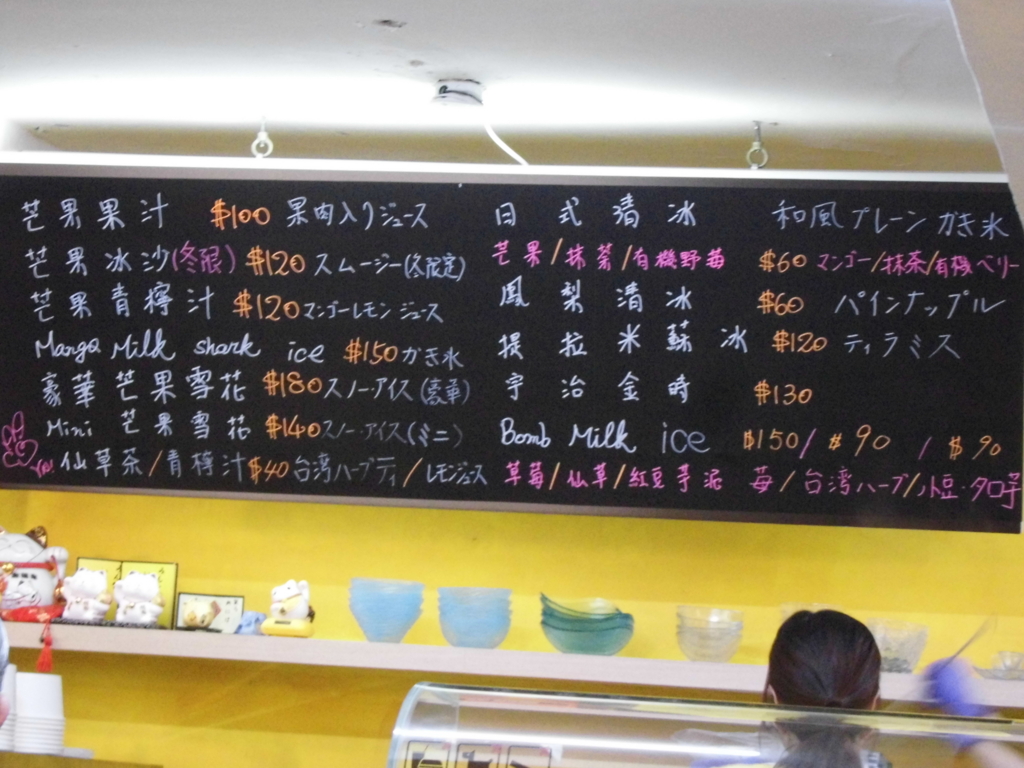 芒果果汁 $100 果肉入りジュース
芒果冰沙(冬限) $120 スムージー(冬限定)
芒果青檸汁 $120 マンゴーレモンジュース
Mango Milk shark ice $150 かき氷
豪華芒果雪花 $180 スノーアイス(豪華)
Mini 芒果雪花 $140 スノーアイス(ミニ)
仙草茶/青檸汁 $40 台湾ハーブティ/レモンジュース
日式清冰 和風プレーンかき氷
芒果/抹茶/有機野莓 $60 マンゴー/抹茶/有機ベリー
鳳梨清冰 $60 パインナップル
提拉米蘇冰 $120 ティラミス
宇治金時 $130
Bomb Milk ice $150/$90/$90
草莓/仙草/紅豆芋泥 苺/台湾ハーブ/小豆・タロ芋